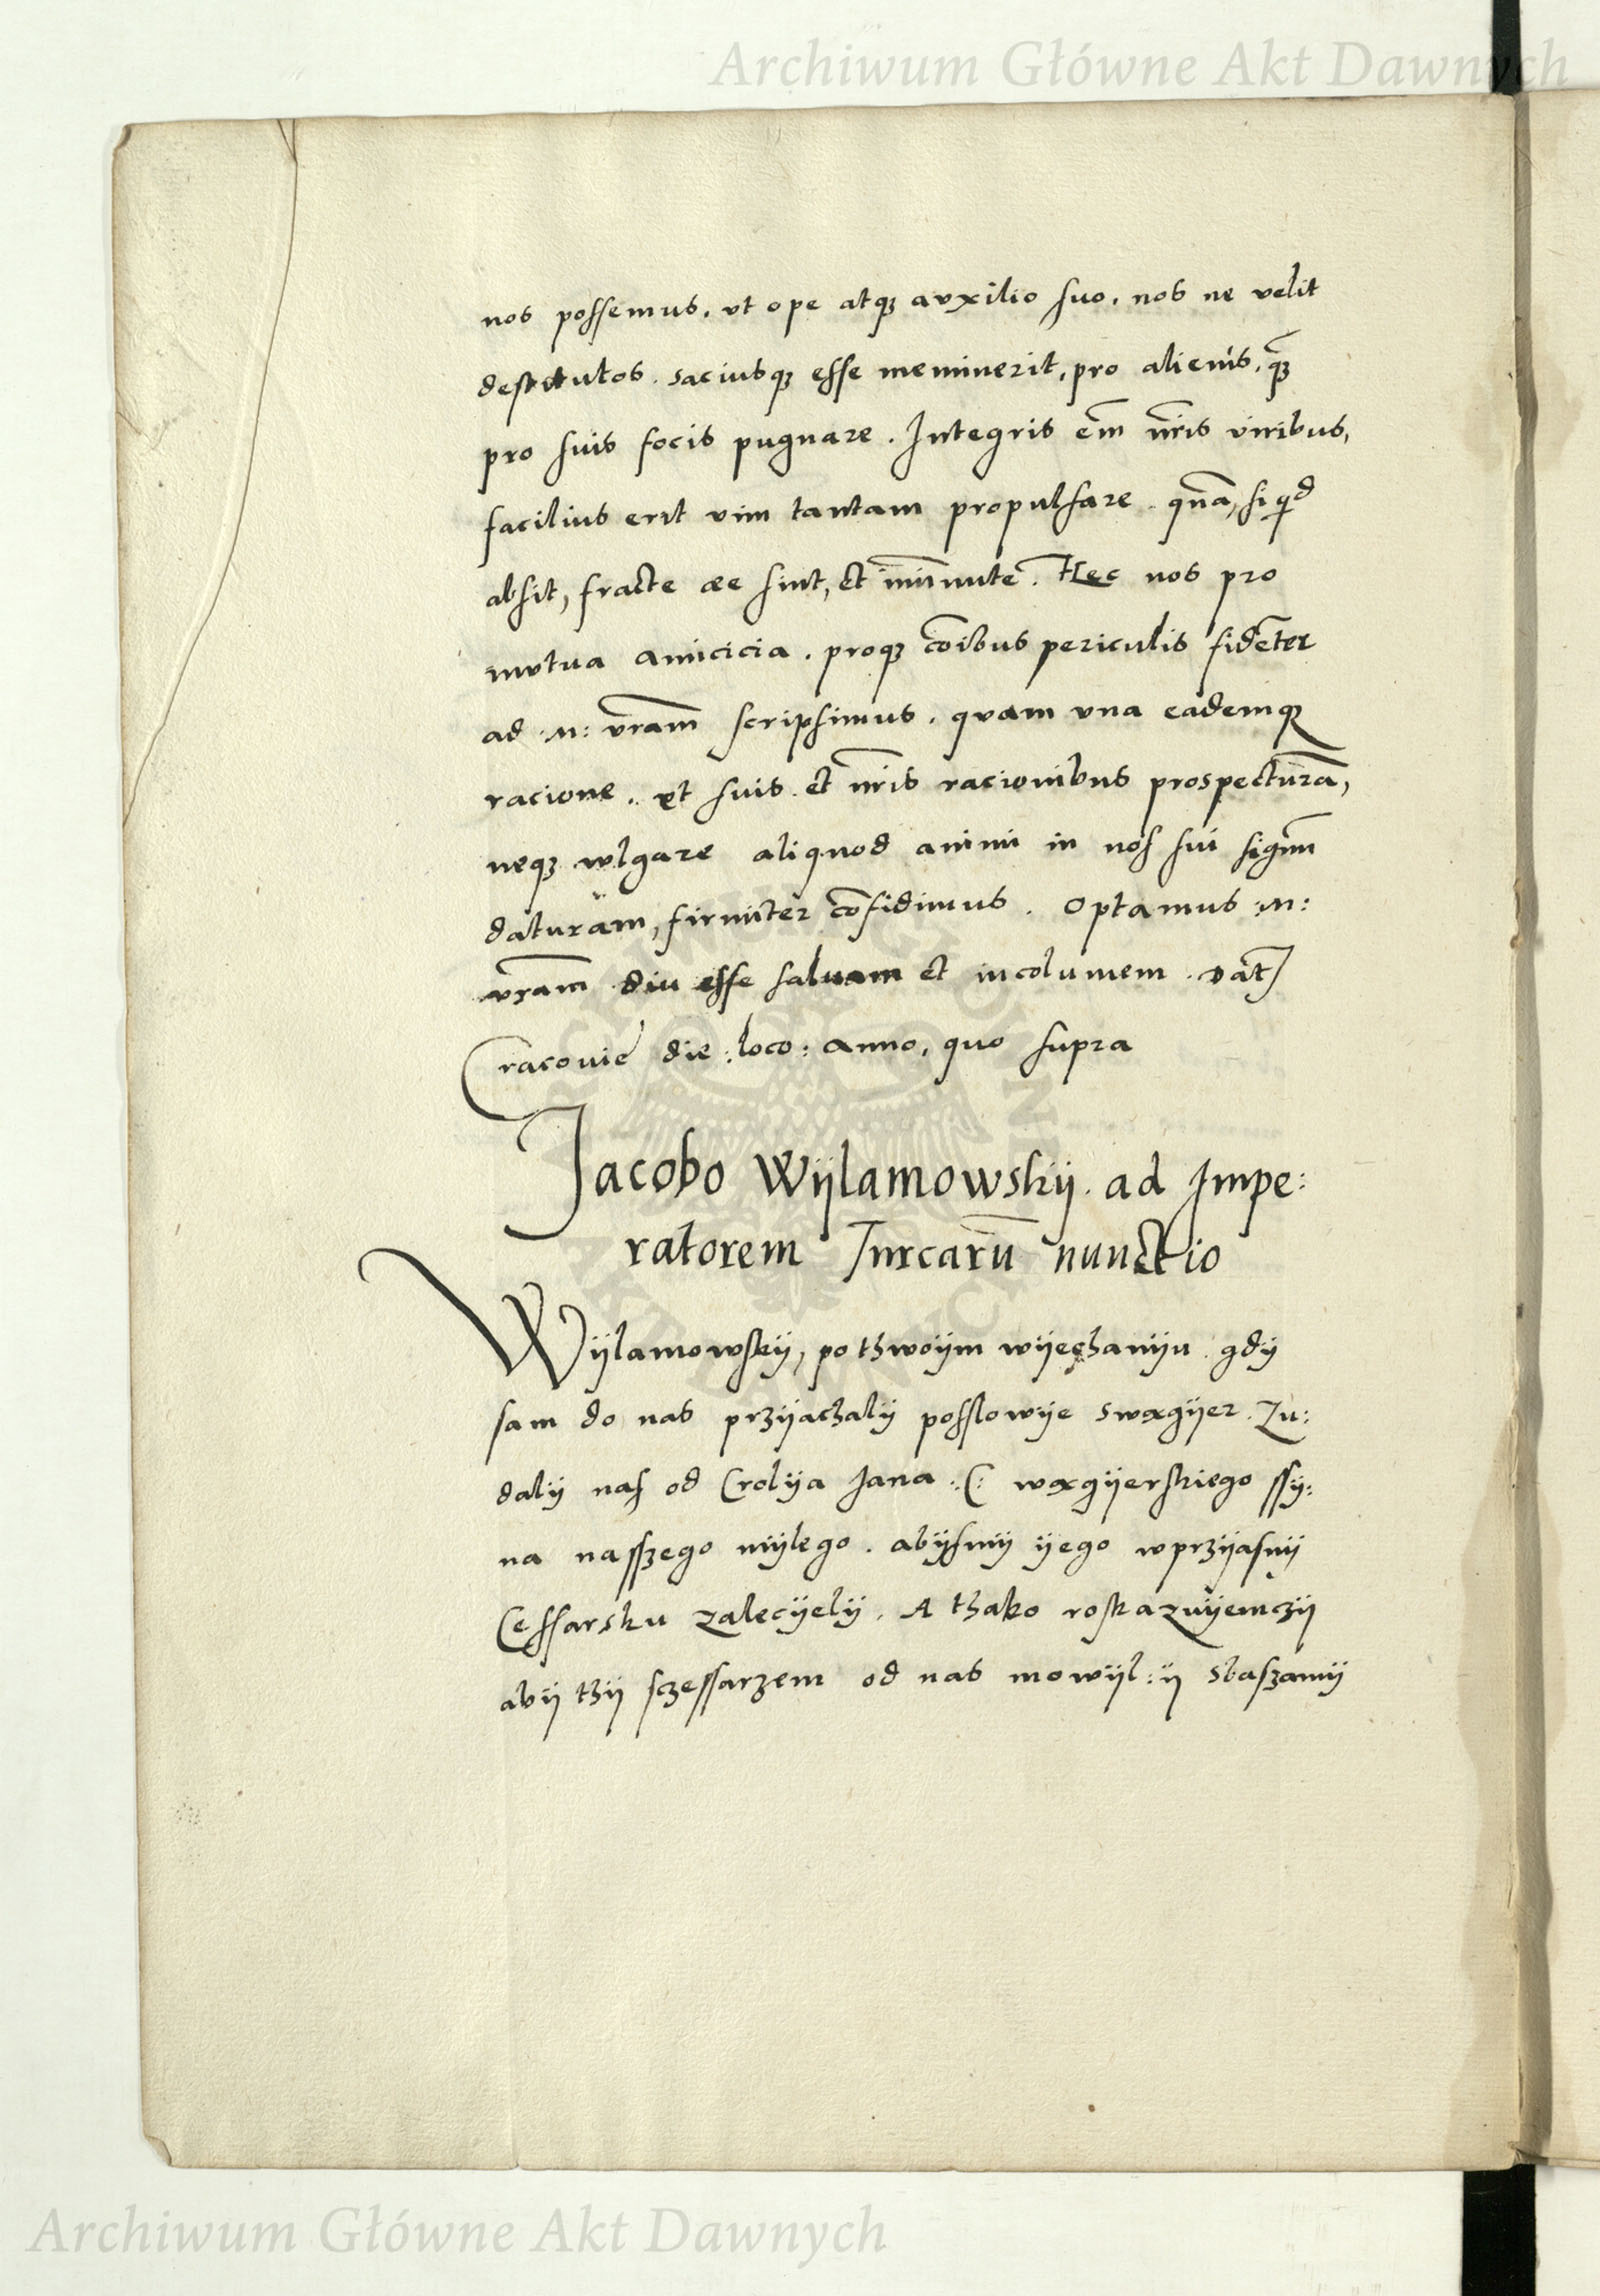 Archiwum Główne Akt Dawnych
nos possemus. vt ope atq₃ auxilio suo, nos ne velit
destitutos. saciusq₃ esse meminerit, pro alienis, q̃₃
pro suis focis pugnare. Integris em̃ nr̃is viribus,
facilius erit vim tantam propulsare. qnã, si qͩ
absit, fracte ee sint, et im̃inute. Hec nos pro
mutua amicicia. proq₃ cõibus periculis fidẽter
ad .M: vr̃am scripsimus. quam vna eademq₃
racione. vt suis et nr̃is racionibus prospecturã,
neq₃ wlgare aliquod animi in nos sui signũ
daturam, firmiter cõfidimus. Optamus .M:
vr̃am diu esse saluam et incolumem. Dat̃
Cracouie die: loco: anno, quo supra
Jacobo Wÿlamowskÿ. ad Impe:
ratorem Turcarũ nunctio
Wÿlamowskÿ, po thwoÿm wÿechanÿu gdÿ
sam do nas przÿachalÿ posslowÿe swągÿer. Zu:
dalÿ nas od Crolÿa Jana .C: wągÿerskiego ssÿ:
na nasszego mÿlego. abÿsmÿ ÿego wprzÿasnÿ
Cessarsku zalecÿelÿ. A thako roskazuÿemczÿ
abÿ thÿ sczessarzem od nas mowÿl: ÿ sbaszamÿ
Archiwum Główne Akt Dawnych